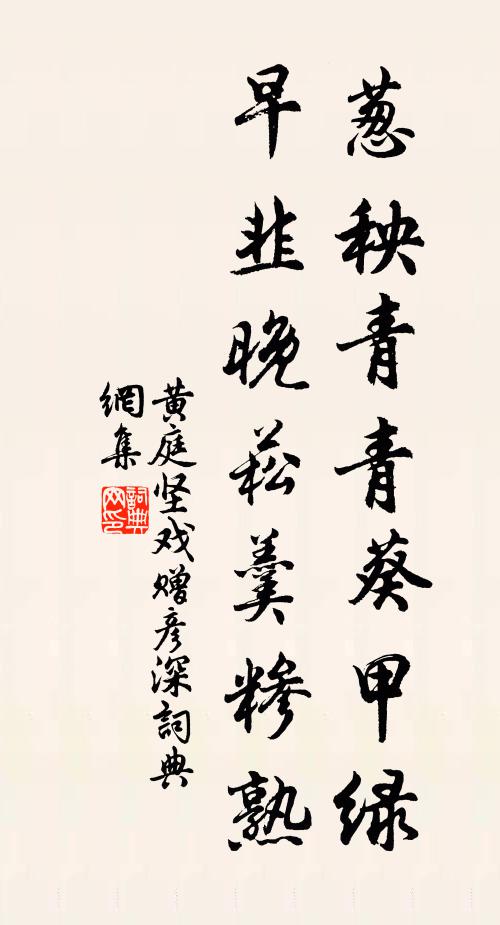 葱秧青青葵甲绿
早韭晚菘羹糁熟
黄庭坚戏赠彦深詞典
網集
詞典
网印